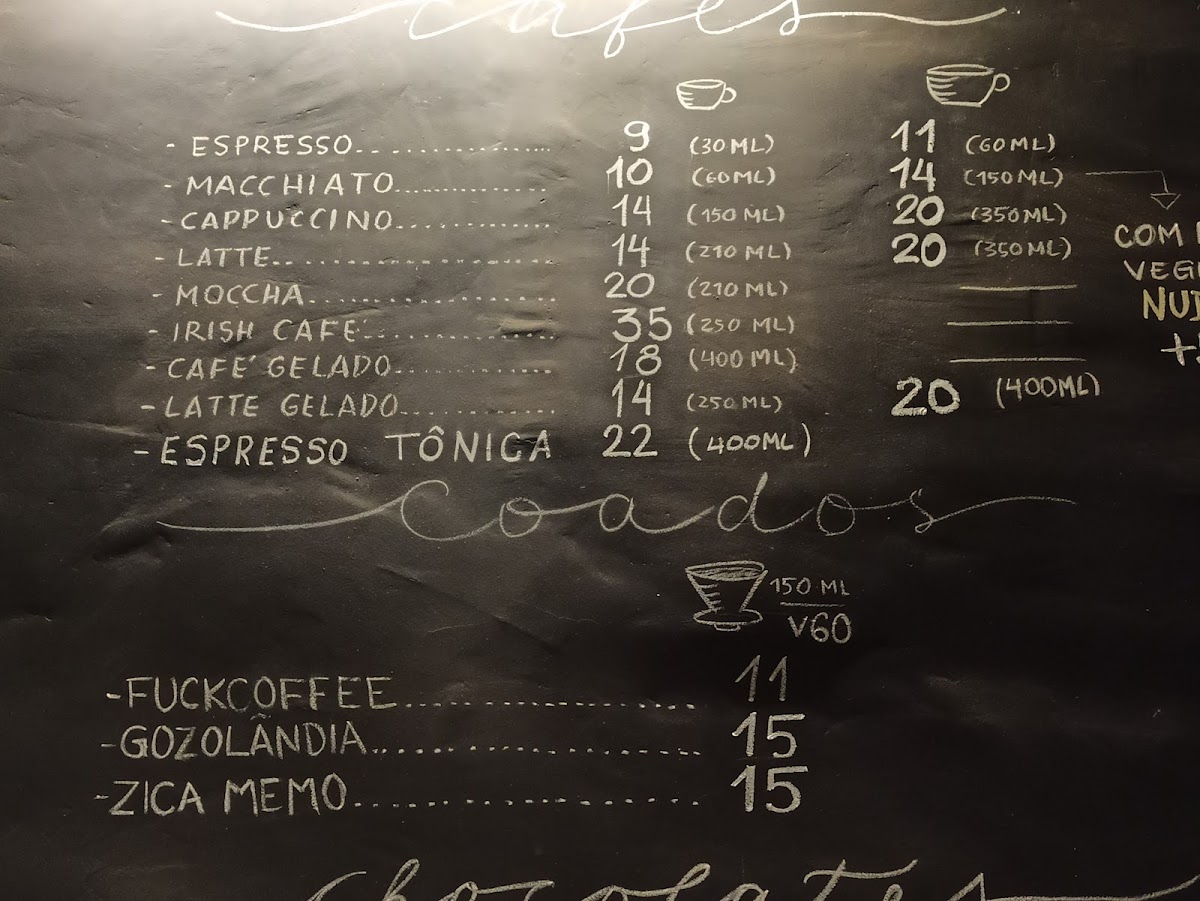 cafés
- ESPRESSO................... 9 (30ML) 11 (60ML)
- MACCHIATO................. 10 (60ML) 14 (150ML)
- CAPPUCCINO.............. 14 (150ML) 20 (350ML)
- LATTE.............................. 14 (210ML) 20 (350ML)
- MOCCHA......................... 20 (210ML)
- IRISH CAFÉ................... 35 (250 ML)
- CAFÉ GELADO................ 18 (400ML)
- LATTE GELADO............... 14 (250ML) 20 (400ML)
- ESPRESSO TÔNICA 22 (400ML)
COM
coados
150 ML
V60
-FUCKCOFFEE.............................. 11
-GOZOLÂNDIA.............................. 15
-ZICA MEMO................................ 15
chocolates